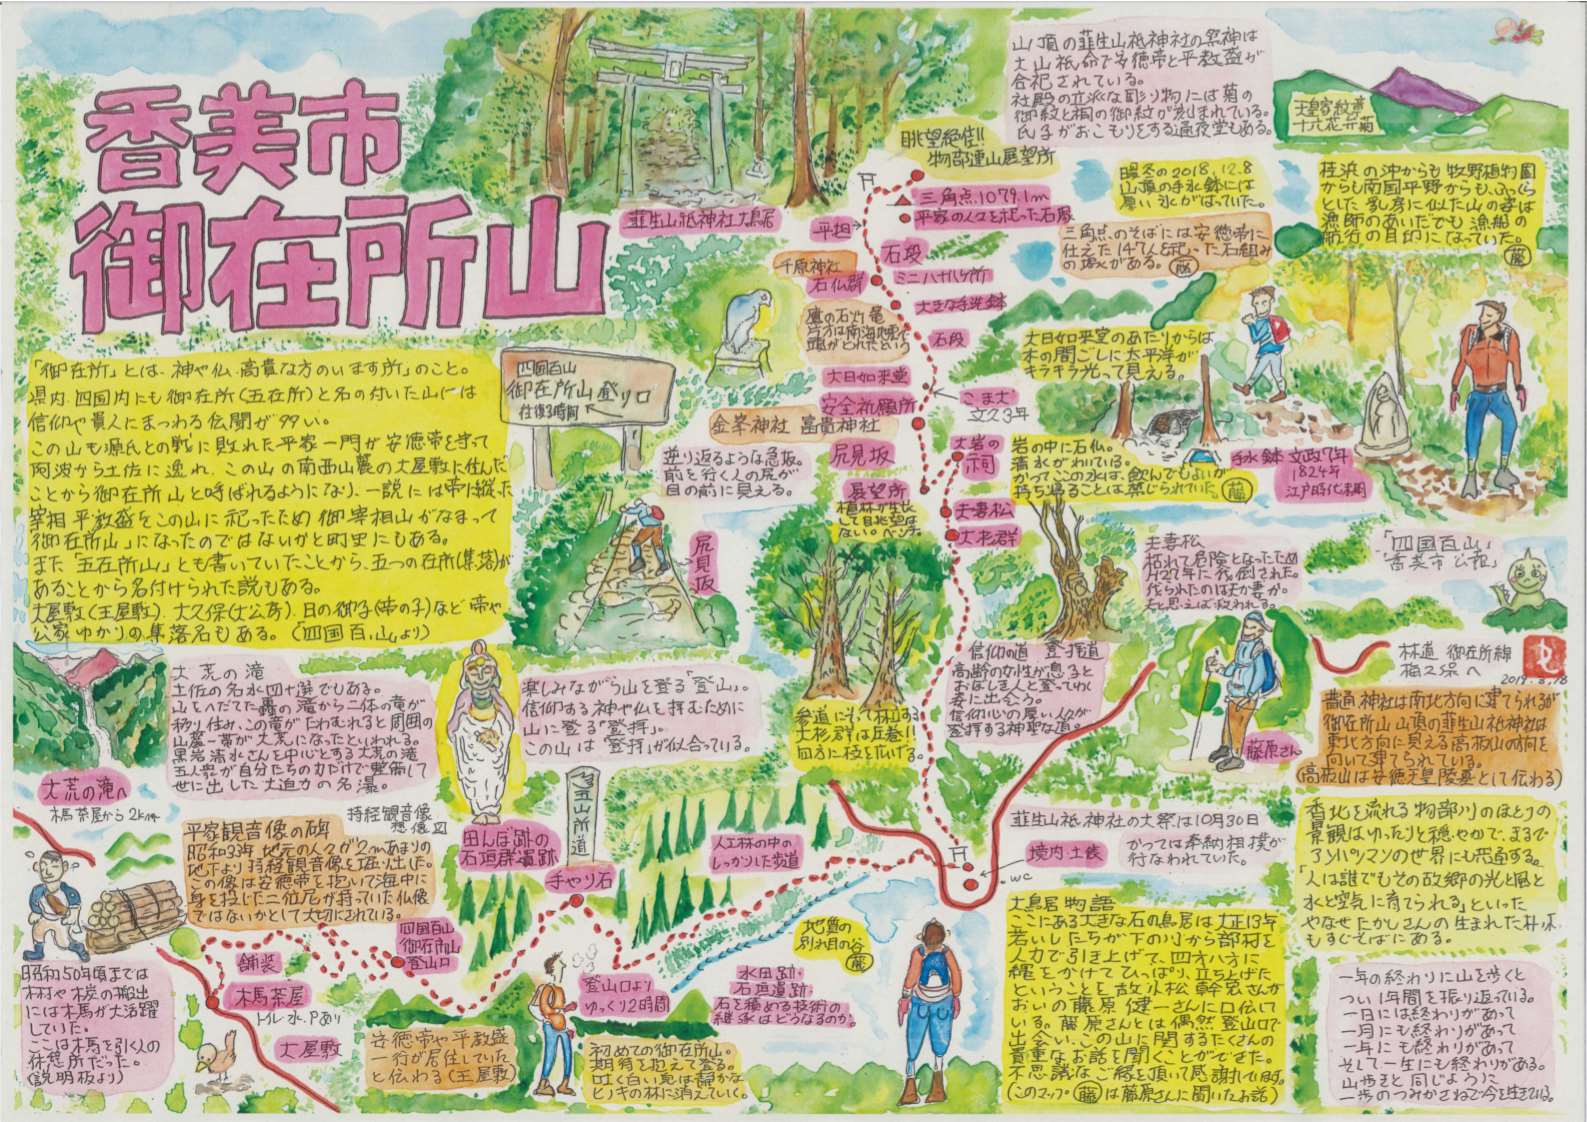 香美市
御在所山
「御在所」とは、神や仏、高貴な方のいます所」のこと。
県内、四国内にも御在所(五在所)と名の付いた山には
信仰や貴人にまつわる伝聞が多い。
この山も源氏との戦に敗れた平家一門が安徳帝を守って
阿波から土佐に逃れ、この山の南西山麓の大屋敷に住んだ
ことから御在所山と呼ばれるようになり、一説には帝に従った
宰相平教盛をこの山に祀ったため御宰相山がなまって
御在所山」になったのではないかと町史にもある。
また「五在所山」とも書いていたことから、五つの在所(集落)が
あることから名付けられた説もある。
大屋敷(王屋敷)、大久保(大公方)、日の御子(帝の子)など帝や
公家ゆかりの集落名もある。(「四国百山」より)
韮生山祇神社大鳥居
山頂の韮生山祇神社の祭神は
大山祇命で安徳帝と平教盛が
合祀されている。
社殿の立派な彫り物には菊の
御紋と桐の御紋が刻まれている。
氏子がおこもりをする通夜堂もある。
天皇家紋章
十六花弁菊
眺望絶佳!!
物部連山展望所
三角点、1079.1m
平家の人々を祀った石塚
平坦
石段
千原神社
石仏群
ミニハナルゲ所
大きな手洗鉢
石段
暖冬の2018.12.8
山頂の手水鉢には
厚い氷がはっていた。
三角点のそばには安徳帝に
仕えた147人を祀いた石組み
の塚がある。藤
桂浜の沖からも牧野植物園
からも南国平野からも、ふっくら
とした乳房に似た山の姿は
漁師のあいだでも漁船の
航行の目印になっていた。
藤
鷹の石灯篭
片方は南海地震で
頭がとれたという
大日如来堂
安全祈願所
金峯神社 富貴神社
こま犬
文久3年
大日如来堂のあたりからは
木の間ごしに太平洋が
キラキラ光って見える。
四国百山
御在所山登り口
往復3時間
逆り返るような急坂。
前を行く人の尻が
目の前に見える。
尻見坂
尻見坂
大岩の
祠
岩の中に石仏。
清水がわいている。
かつてこの水は、飲んでもよいが
持ち帰ることは禁じられていた。藤
手水鉢 文政7年
1824年
江戸時代末期
展望所
植林が生長
して眺望は
ない。ベンチ。
夫妻松
大杉群
夫妻松
枯れて危険となったため
H27年に伐倒された。
伐られたのは夫か妻か。
夫と思えば救われる。
「四国百山」
「香美市公報」
大荒の滝
土佐の名水四十選でもある。
山をへだてた轟の滝から二体の竜が
移り住み、この竜がたわむれると周囲の
山麓一帯が大荒になったといわれる。
黒岩清水さんを中心とする大荒の滝
五人衆が自分たちの力だけで整備して
世に出した大迫力の名瀑。
大荒の滝へ
木馬茶屋から2km
楽しみながら山を登る「登山」。
信仰する神や仏を拝むために
山に登る「登拝」。
この山は「登拝」が似合っている。
参道にそって林立する
大杉群は丘巻に
四方に枝を広げる。
信仰の道 登拝道
高齢の女性が息ると
おばしき人と登ってゆく
姿に出会う。
信仰心の厚い人々が
登拝する神聖な道。
藤原さん
林道 御在所線
梅久保へ
2019.8.18
普通神社は南北方向に建てられるが
御在所山山頂の韮生山祇神社は
東北方向に見える高板山の方向を
向いて建てられている。
(高板山は安徳天皇陵墓として伝わる)
持経観音像
想像図
平家観音像の碑
昭和33年地元の人々が2mあまりの
地下より持経観音像を掘り出した。
この像は安徳帝を抱いて海中に
身を投じた二位尼が持っていた仏像
ではないかとして大切にされている。
田んぼ跡の
石垣群遺跡
五山所道
手やり石
人工林の中の
しっかりした歩道
韮生山祇神社の大祭は10月30日
かつては奉納相撲が
行なわれていた。
境内土俵
WC
香北を流れる物部川のほとりの
景観はゆったりと穏やかで、まるで
アンパンマンの世界にも共通する。
「人は誰でもその故郷の光と風と
水と空気に育てられる」といった
やなせたかしさんの生まれた朴ノ木
もすぐそばにある。
四国百山
御在所山
登山口
舗装
木馬茶屋
トイレ.水.Pあり
大屋敷
昭和50年頃までは
木材や木炭の搬出
には木馬が大活躍
していた。
ここは木馬を引く人の
休憩所だった。
(説明板より)
安徳帝や平教盛
一行が居住していた
と伝わる(王屋敷)
登山口より
ゆっくり2時間
初めての御在所山。
期待を抱えて登る。
吐く白い息は静かな
ヒノキの林に消えていく。
地質の
別れ目の谷
藤
水田跡
石垣遺跡
石を積める技術の
継承はどうなるのか。
大鳥居物語
ここにある大きな石の鳥居は大正13年
若いしたちが下の川から部材を
人力で引き上げて、四方八方に
縄をかけてひっぱり、立ち上げた
ということを故小松幹宏さんが
おいの藤原健一さんに口伝して
いる。藤原さんとは偶然登山口で
出会い、この山に関するたくさんの
貴重なお話を聞くことができた。
不思議なご縁を頂いて感謝しています。
(このマップ、藤は藤原さんに聞いたお話)
一年の終わりに山を歩くと
つい1年間を振り返っている。
一日には終わりがあって
一月にも終わりがあって
一年にも終わりがあって
そして一生にも終わりがある。
山歩きと同じように
一歩のつみかさねで今を生きている。